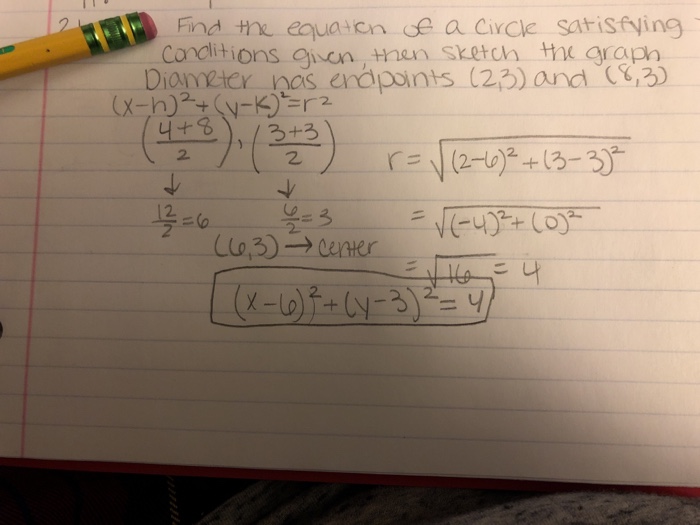 Find the equation of a circle satisfying
conditions given, then sketch the graph
Diameter has endpoints (2,3) and (8,3)
(x-h)²+(y-k)²=r²
(4+8/2), (3+3/2)
r=√(2-6)²+(3-3)²
↓ ↓
12/2=6 6/2=3
=√(-4)²+(0)²
(6,3)→center
=√16=4
(x-6)²+(y-3)²=4